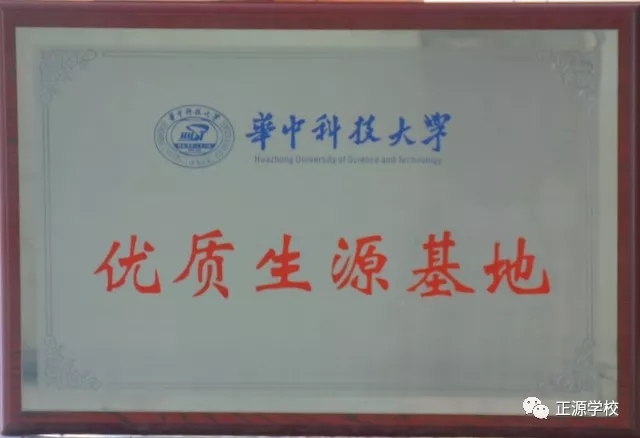 華中科技大学
HUST
華中科技大學
Huazhong University of Science and Technology
优质生源基地
正源学校